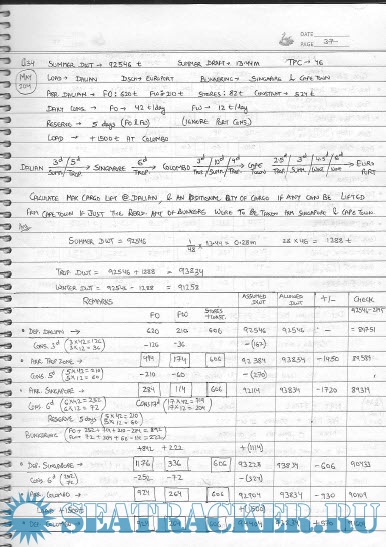 DATE
PAGE 37
Q34 SUMMER DWT → 92546 t SUMMER DRAFT → 13.44m TPC → 46
MAY 2014
LOAD → DALIAN DISCH → EUROPORT BUNKERING → SINGAPORE & CAPE TOWN
ARR DALIAN → FO: 620t FW → 210t STORES: 82t CONSTANT → 524t
DAILY CONS. → FO → 42t/day FW → 12t/day
RESERVE → 5 days (FO & FW) (IGNORE PORT CONS.)
LOAD → +1500t AT COLOMBO
DALIAN SINGAPORE COLOMBO CAPE TOWN EURO PORT
CALCULATE MAX CARGO LIFT @ DALIAN, & AN ADDITIONAL QTY OF CARGO IF ANY CAN BE LIFTED
FRM CAPE TOWN IF JUST THE REQD. AMT OF BUNKERS WERE TO BE TAKEN FRM SINGAPORE & CAPE TOWN.
Ans
SUMMER DWT = 92546 1/48 × 13.44 = 0.28m 28 × 46 = 1288t
TROP DWT = 92546 + 1288 = 93834
WINTER DWT = 92546 - 1288 = 91258
REMARKS FO FW STORES + CONST. ASSUMED DWT ALLOWED DWT +/- CARGO
DEP. DALIAN → 620 210 606 92546 92546 -
CONS. 3d (3×42=126) (3×12=36) -126 -36 -(162)
ARR. TROP ZONE → 494 174 606 92384 93834 -1450
CONS 5d (5×42=210) (5×12=60) -210 -60 -(270)
ARR. SINGAPORE → 284 114 606 92114 93834 -1720 89319
CONS 6d (6×42=252) (6×12=72) CONS 17d (17×42=714) (17×12=204)
RESERVE 5 days (5×42=210) (5×12=60)
BUNKERING
+892 +222 +(1114)
DEP. SINGAPORE → 1176 336 606 93228 93834 -606 90433
CONS 6d (252) (72) -252 -72 -(324)
ARR. COLOMBO → 924 264 606 92904 93834 -930 90109
+(1500)
DEP. COLOMBO → 924 264 606 94404 93834 +570
SEATRACKER.RU